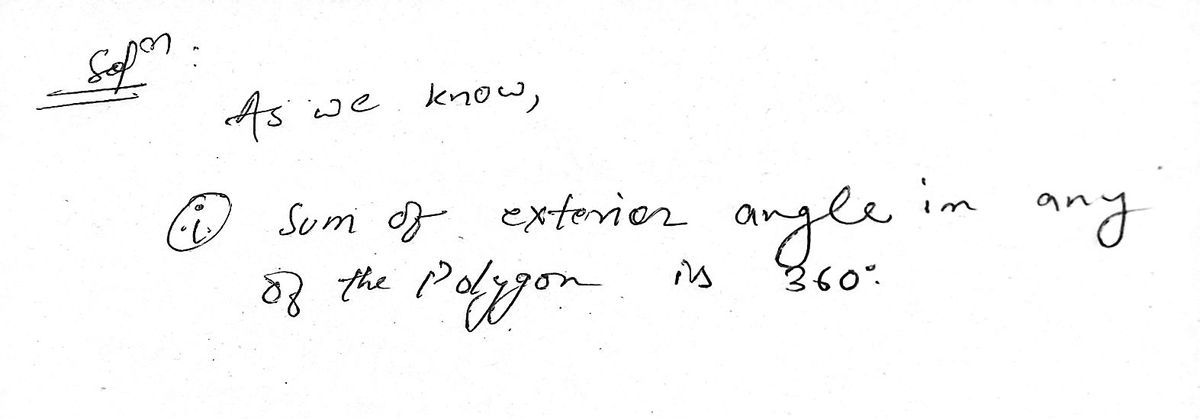 Solⁿ:
As we know,
(i) Sum of exterior angle in any
of the Polygon is 360°.